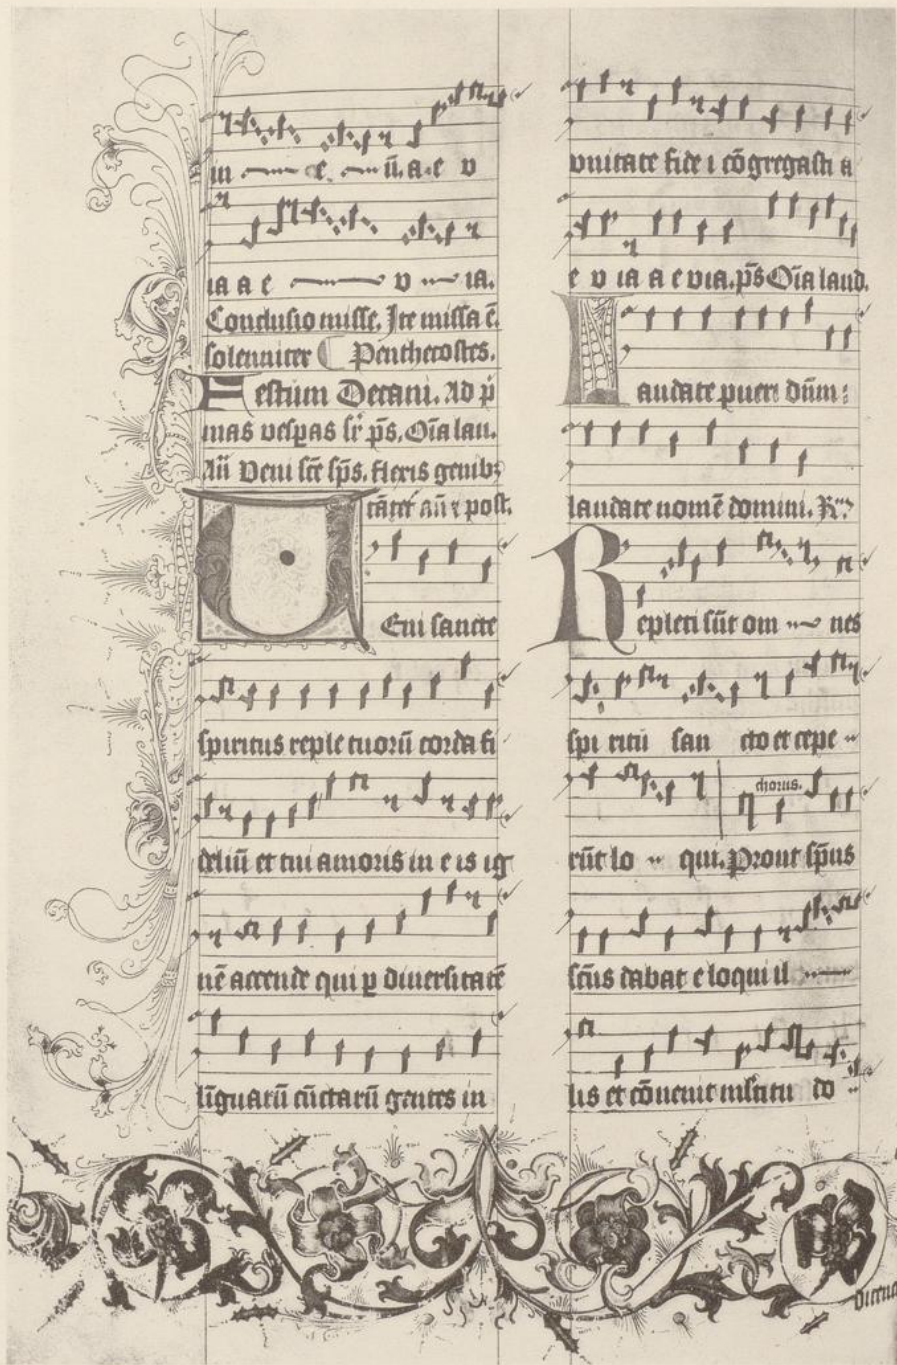 in e. ū. a. e v
ia a e v ia.
Conclusio misse. Ite missa ē
solenniter Penthecostes.
Festum Decani. Ad p̄
mas vesꝑas sr̄ pš, Oīa lau.
Añ Veni scē sps̄, flexis genibꝫ
cātet̄ añ ꞇ post.
VEni sancte
spiritus reple tuorū corda fi
deliū et tui amoris in e is ig
nē accende qui ꝑ diuersitatē
liguarū cūctarū gentes in
vnitate fide i cōgregasti a
e v ia a e via. pš Oīa laud.
Laudate pueri dūm:
laudate nomē domini. R
Repleti sūt om nes
spi ritū san cto et cepe
chorus.
rūt lo qui. Prout spūs
scūs dabat e loqui il
lis et cōuenit multitu do